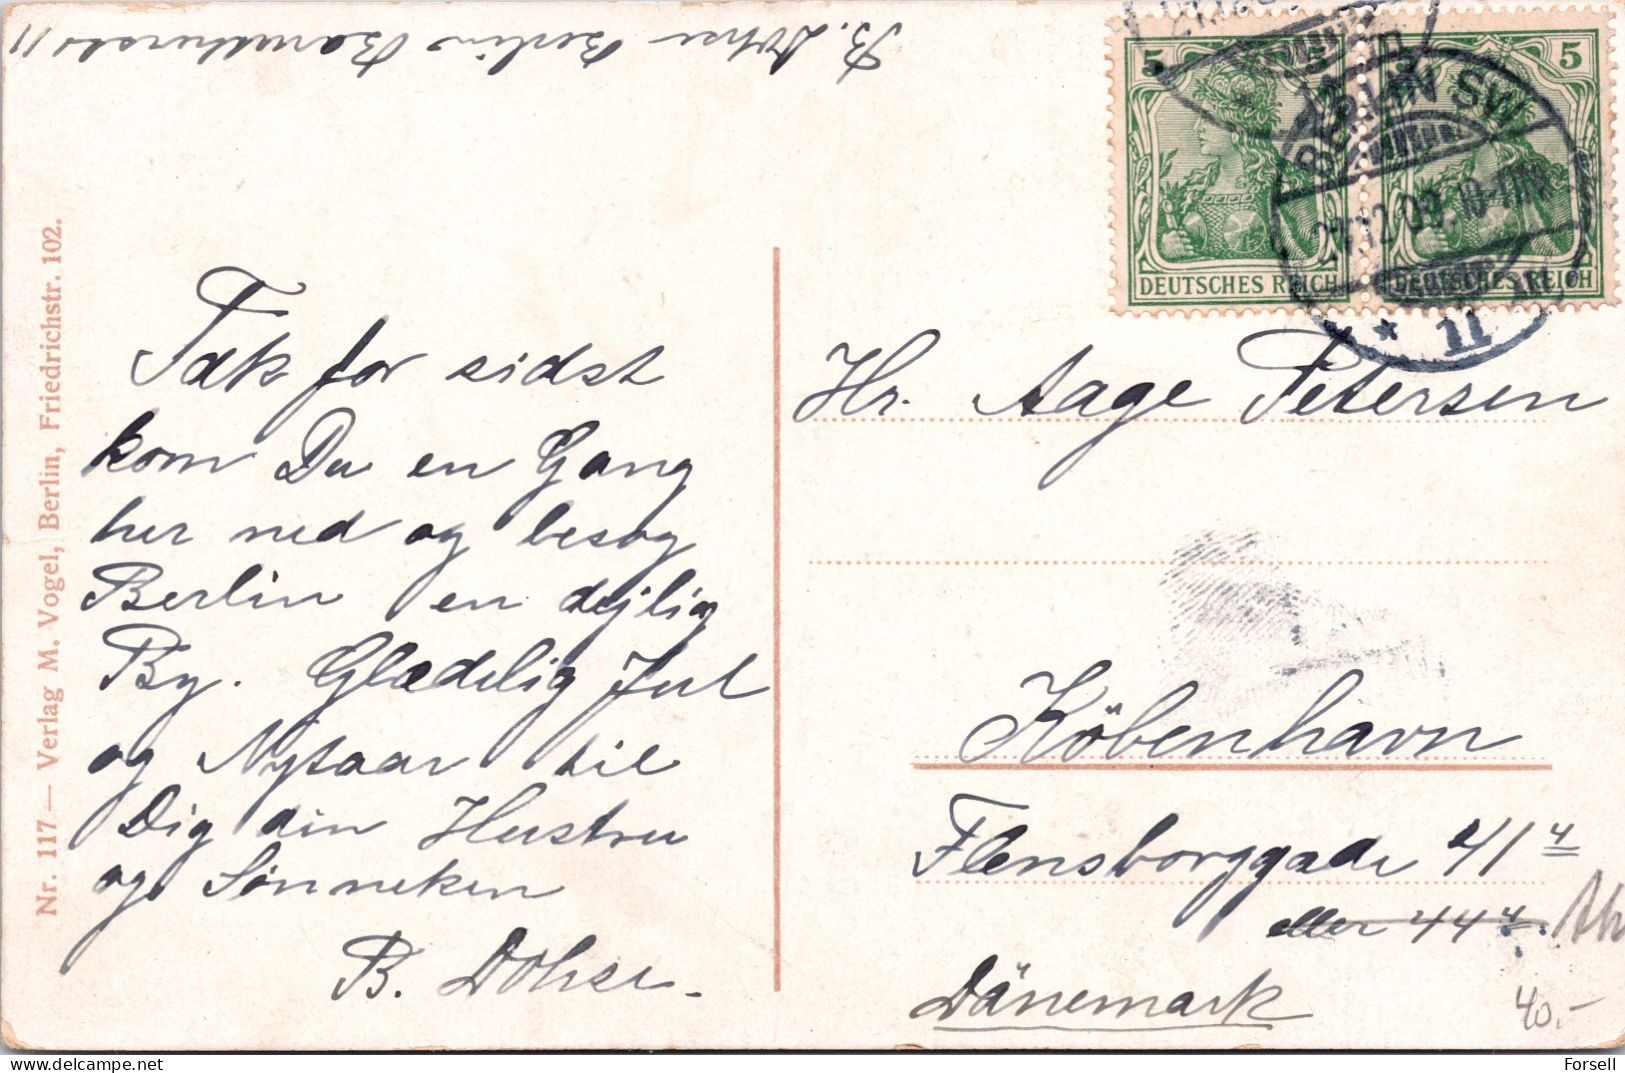 B. Dohse Berlin
5
5
BERLIN SW
27.12.09. 10-11
* 11
DEUTSCHES REICH
DEUTSCHES REICH
Nr. 117 — Verlag M. Vogel, Berlin, Friedrichstr. 102.
Tak for sidst
kom Du en Gang
her ned og besøg
Berlin en dejlig
By. Glædelig Jul
og Nytaar til
Dig din Hustru
og Sønneken
B. Dohse.
Hr. Aage Petersen
Köbenhavn
Flensborggade 41 4
eller 44 4.
Dänemark
40.-
Forsell